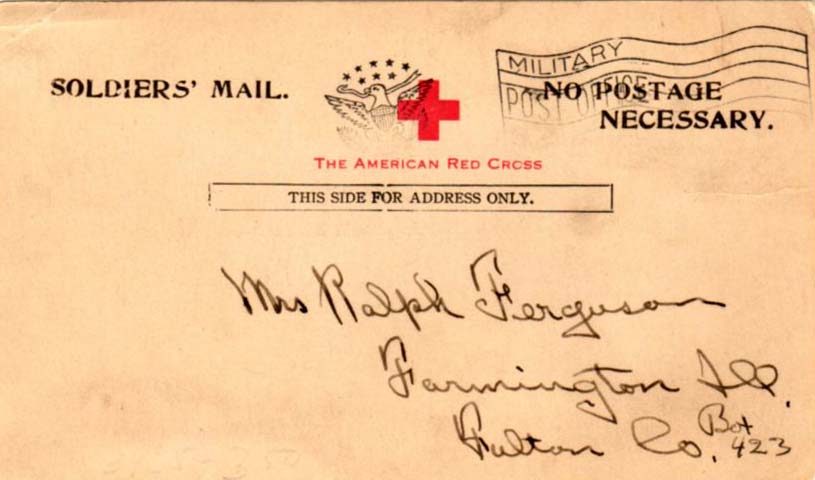 SOLDIERS' MAIL.
MILITARY
POST OFFICE
NO POSTAGE
NECESSARY.
THE AMERICAN RED CROSS
THIS SIDE FOR ADDRESS ONLY.
Mrs Ralph Ferguson
Farmington Ill.
Fulton Co. Box 423